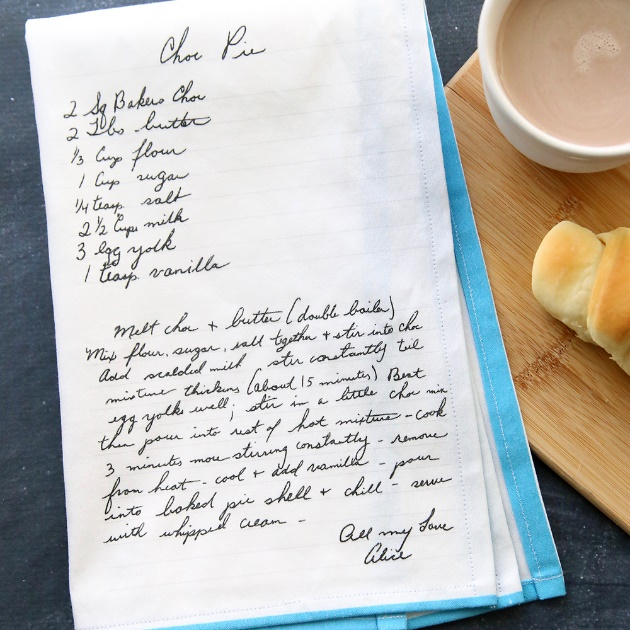 Choc Pie
2 Sq Bakers Choc
2 Tbs butter
1/3 Cup flour
1 Cup sugar
1/4 teasp salt
2 1/2 Cups milk
3 egg yolk
1 teasp vanilla
Melt choc + butter (double boiler)
Mix flour, sugar, salt together + stir into choc
Add scalded milk stir constantly till
mixture thickens (about 15 minutes) Beat
egg yolks well; stir in a little choc mix
then pour into rest of hot mixture - cook
3 minutes more stirring constantly - remove
from heat - cool + add vanilla - pour
into baked pie shell + chill - serve
with whipped cream -
All my Love
Alice